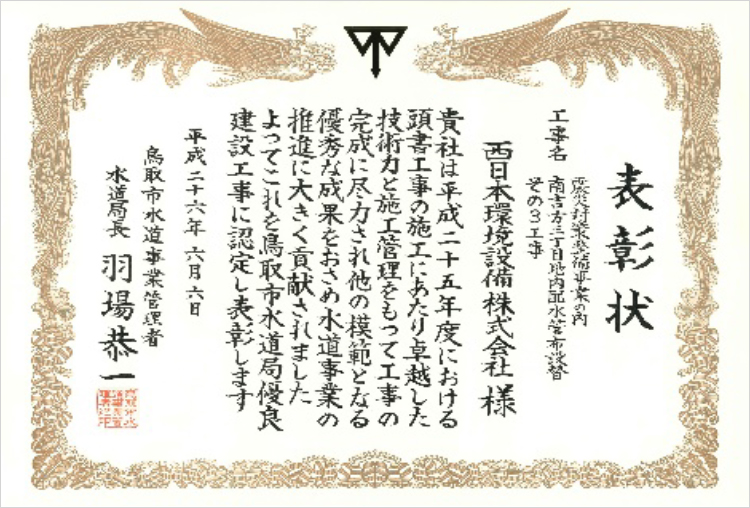 表彰状
工事名
震災対策整備事業の内
南吉方三丁目地内配水管布設替
その3工事
西日本環境設備株式会社 様
貴社は平成二十五年度における
頭書工事の施工にあたり卓越した
技術力と施工管理をもって工事の
完成に尽力され他の模範となる
優秀な成果をおさめ水道事業の
推進に大きく貢献されました
よってこれを鳥取市水道局優良
建設工事に認定し表彰します
平成二十六年 六月 六日
鳥取市水道事業管理者
水道局長 羽場恭一